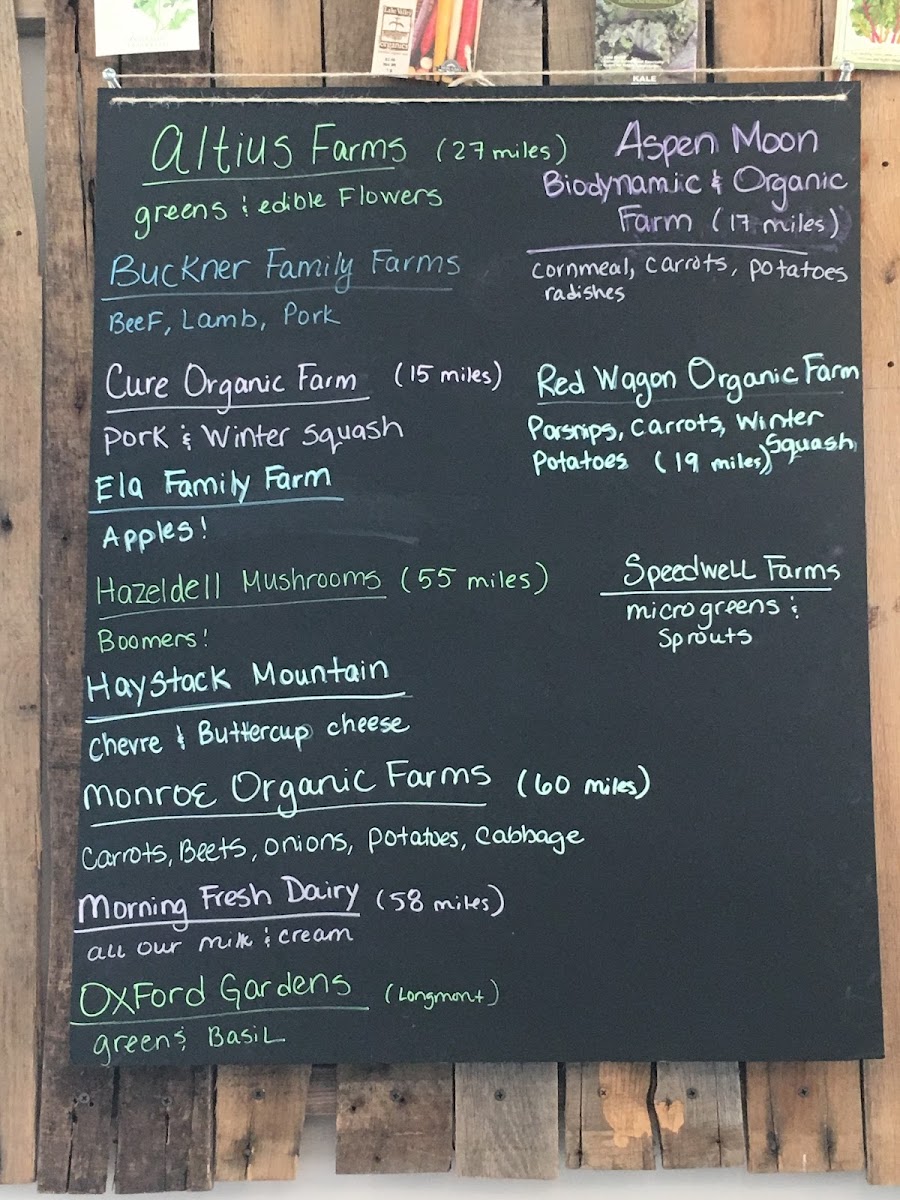 organics
KALE
Altius Farms (27 miles)
greens & edible Flowers
Buckner Family Farms
Beef, Lamb, Pork
Cure Organic Farm (15 miles)
Pork & Winter Squash
Ela Family Farm
Apples!
Hazeldell Mushrooms (55 miles)
Boomers!
Haystack Mountain
Chevre & Buttercup cheese
Monroe Organic Farms (60 miles)
Carrots, Beets, onions, potatoes, cabbage
Morning Fresh Dairy (58 miles)
all our milk & cream
Oxford Gardens (Longmont)
greens, Basil
Aspen Moon
Biodynamic & Organic
Farm (17 miles)
cornmeal, carrots, potatoes
radishes
Red Wagon Organic Farm
Parsnips, Carrots, Winter
Squash,
Potatoes (19 miles)
Speedwell Farms
microgreens &
Sprouts